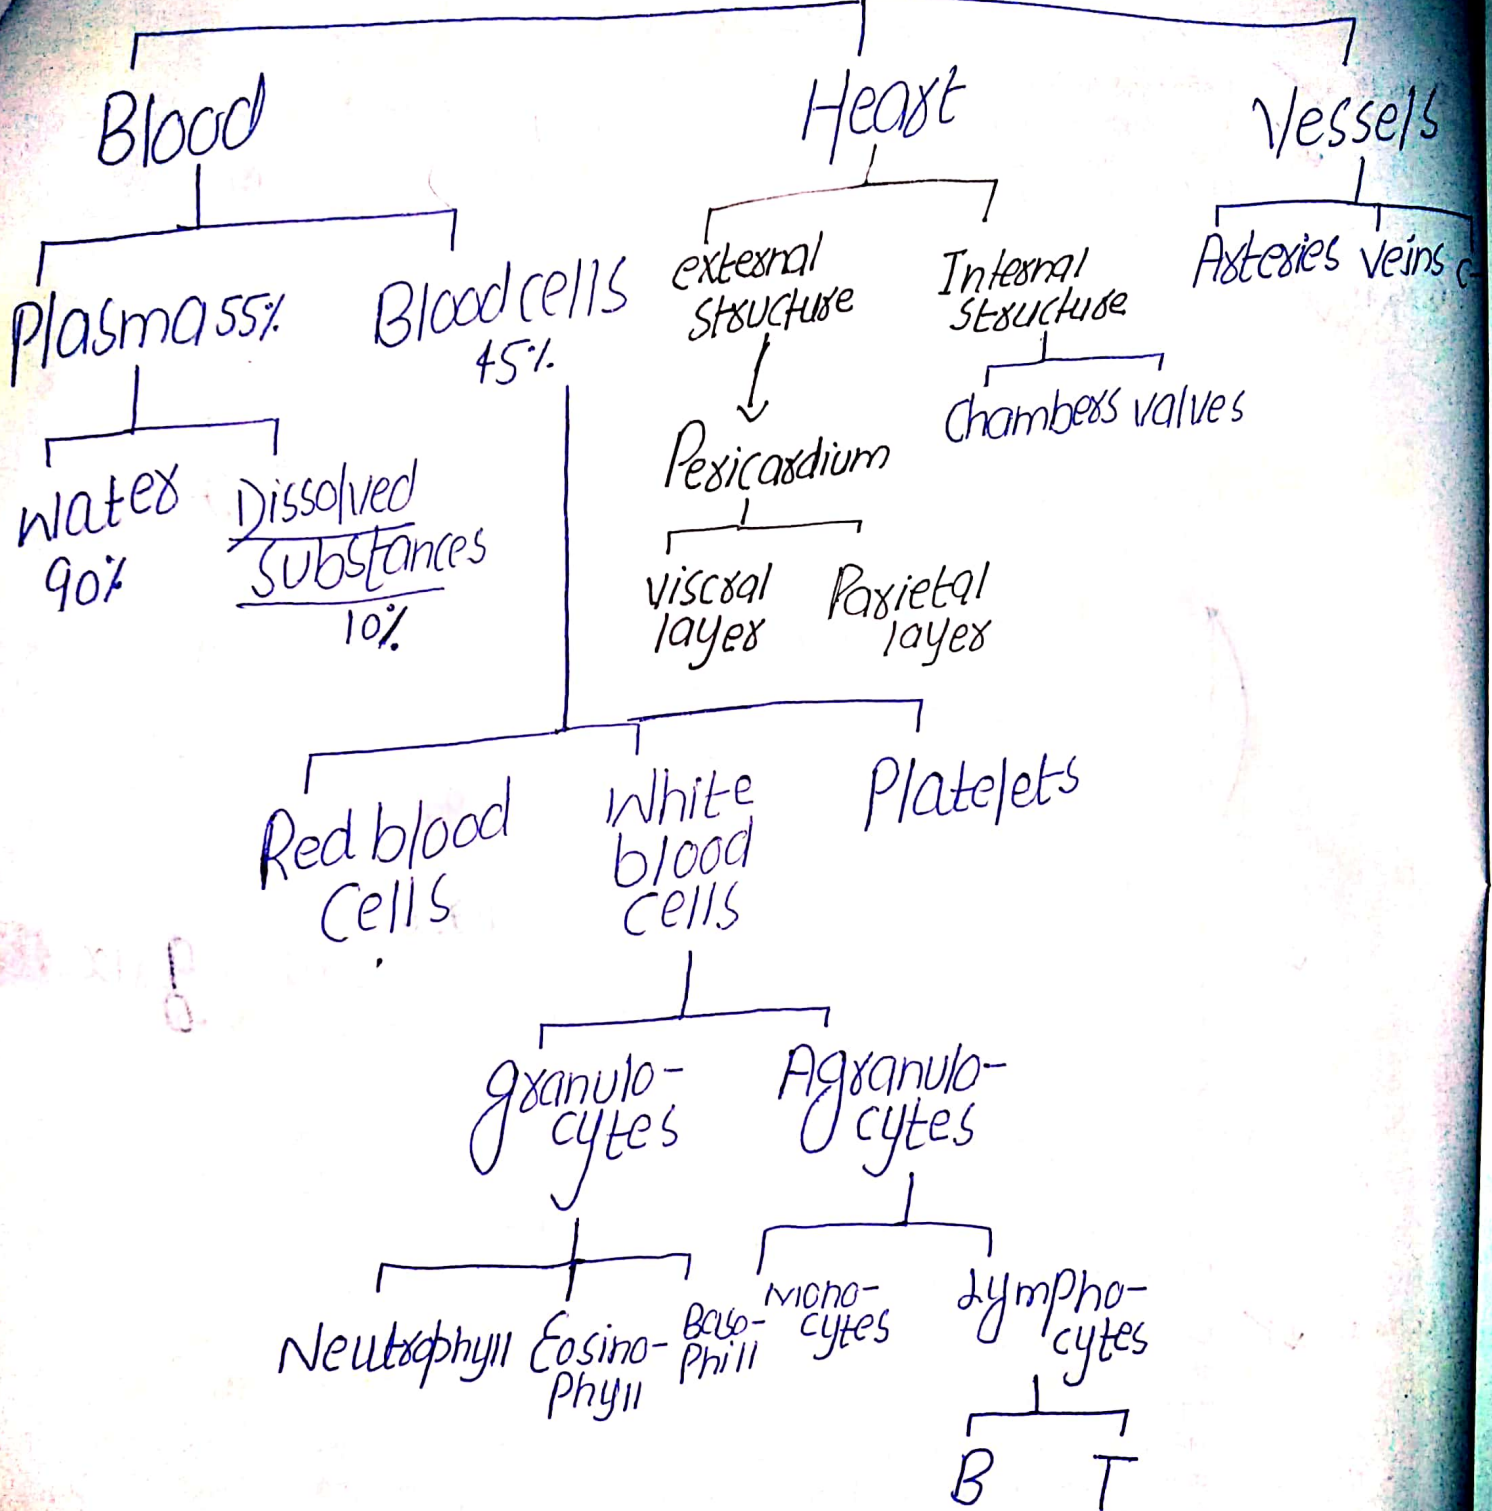 Blood
Heart
Vessels
Plasma 55%
Blood cells
45%
external
structure
Internal
structure
Arteries
veins
Chambers
valves
Pericardium
Water
90%
Dissolved
substances
10%
viscral
layer
Parietal
layer
Red blood
Cells
White
blood
cells
Platelets
granulo-
cytes
Agranulo-
cytes
Neutrophyll
Eosino-
Phyll
Baso-
Phill
Mono-
cytes
Lympho-
cytes
B
T